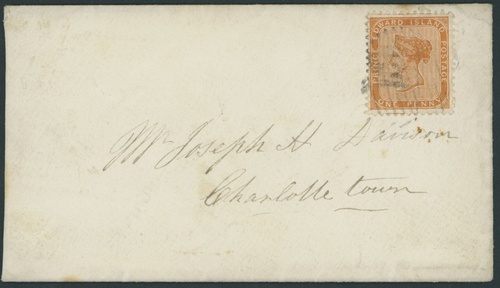 PRINCE EDWARD ISLAND POSTAGE
ONE PENNY
Mr Joseph H Davison
Charlotte town